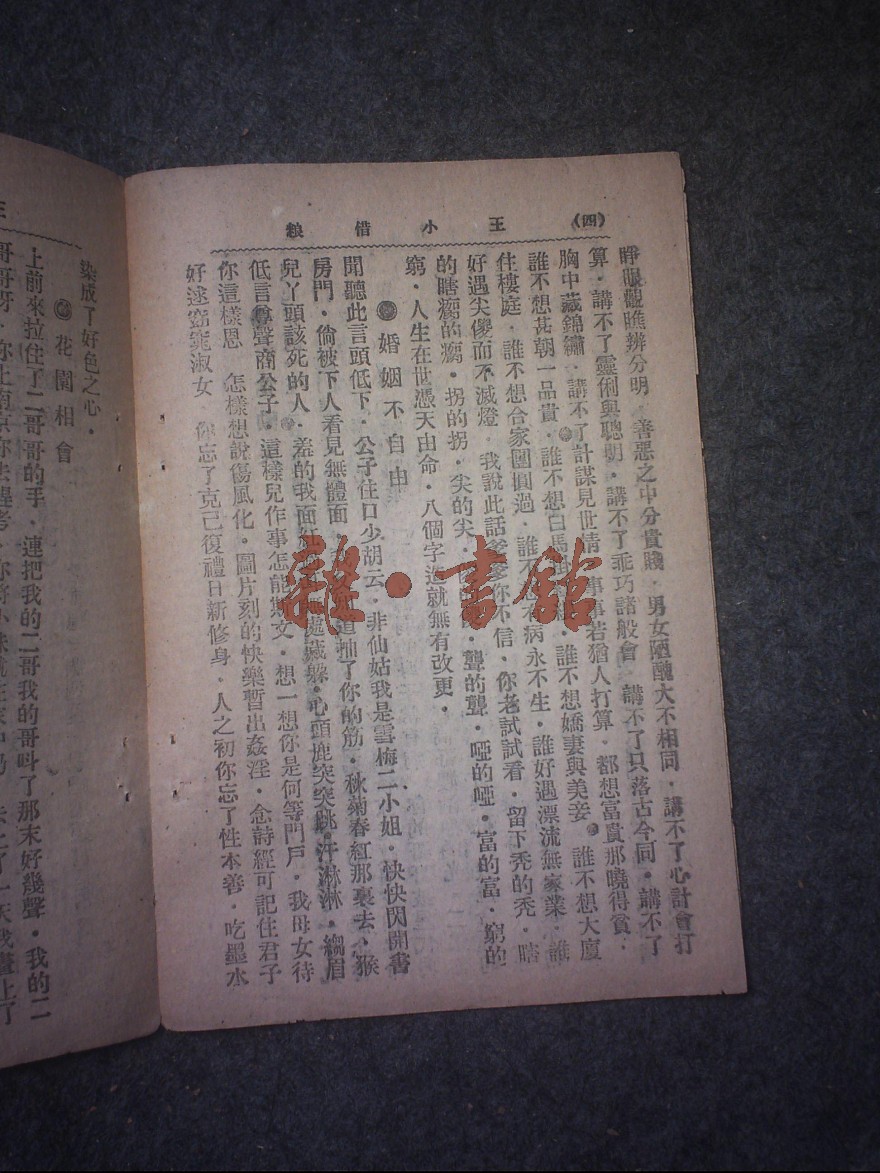 (四)
王小借粮
睜眼觀瞧辨分明．善惡之中分貴賤．男女陋醜大不相同．講不了心計會打
算．講不了靈俐與聰明．講不了乖巧諸般會．講不了只落古今同．講不了
胸中藏錦繡．講不了計謀見世情．事事若猶人打算．都想富貴那曉得貧．
誰不想甚朝一品貴．誰不想白馬．誰不想嬌妻與美妾．誰不想大廈
住樓庭．誰不想合家團圓過．誰不病永不生．誰好遇漂流無家業．誰
好遇尖儍而不滅燈．我說此話爹爹你不信．你老試試看．留下禿的禿．瞎
的瞎瘸的瘸．拐的拐．尖的尖．聾的聾．啞的啞．富的富．窮的
窮．人生在世憑天由命．八個字造就無有改更．
婚姻不自由
聞聽此言頭低下．公子住口少胡云．非仙姑我是雲梅二小姐．快快閃開書
房門．倘被下人看見無體面．道抽了你的筋．秋菊春紅那裏去．猴
兒丫頭該死的人．羞的我面紅處藏躲．心頭鹿突突跳．汗淋淋．縐眉
低言尊聲商公子．這樣兒作事怎能斯文．想一想你是何等門戶．我母女待
你這樣恩 怎樣想說傷風化．圖片刻的快樂暫出姦淫．念詩經可記住君子
好逑窈窕淑女 你忘了克己復禮日新修身．人之初你忘了性本善．吃墨水
染成了好色之心．
花園相會
上前來拉住了二哥哥的手．連把我的二哥我的哥呌了那末好幾聲．我的二
雜·書館